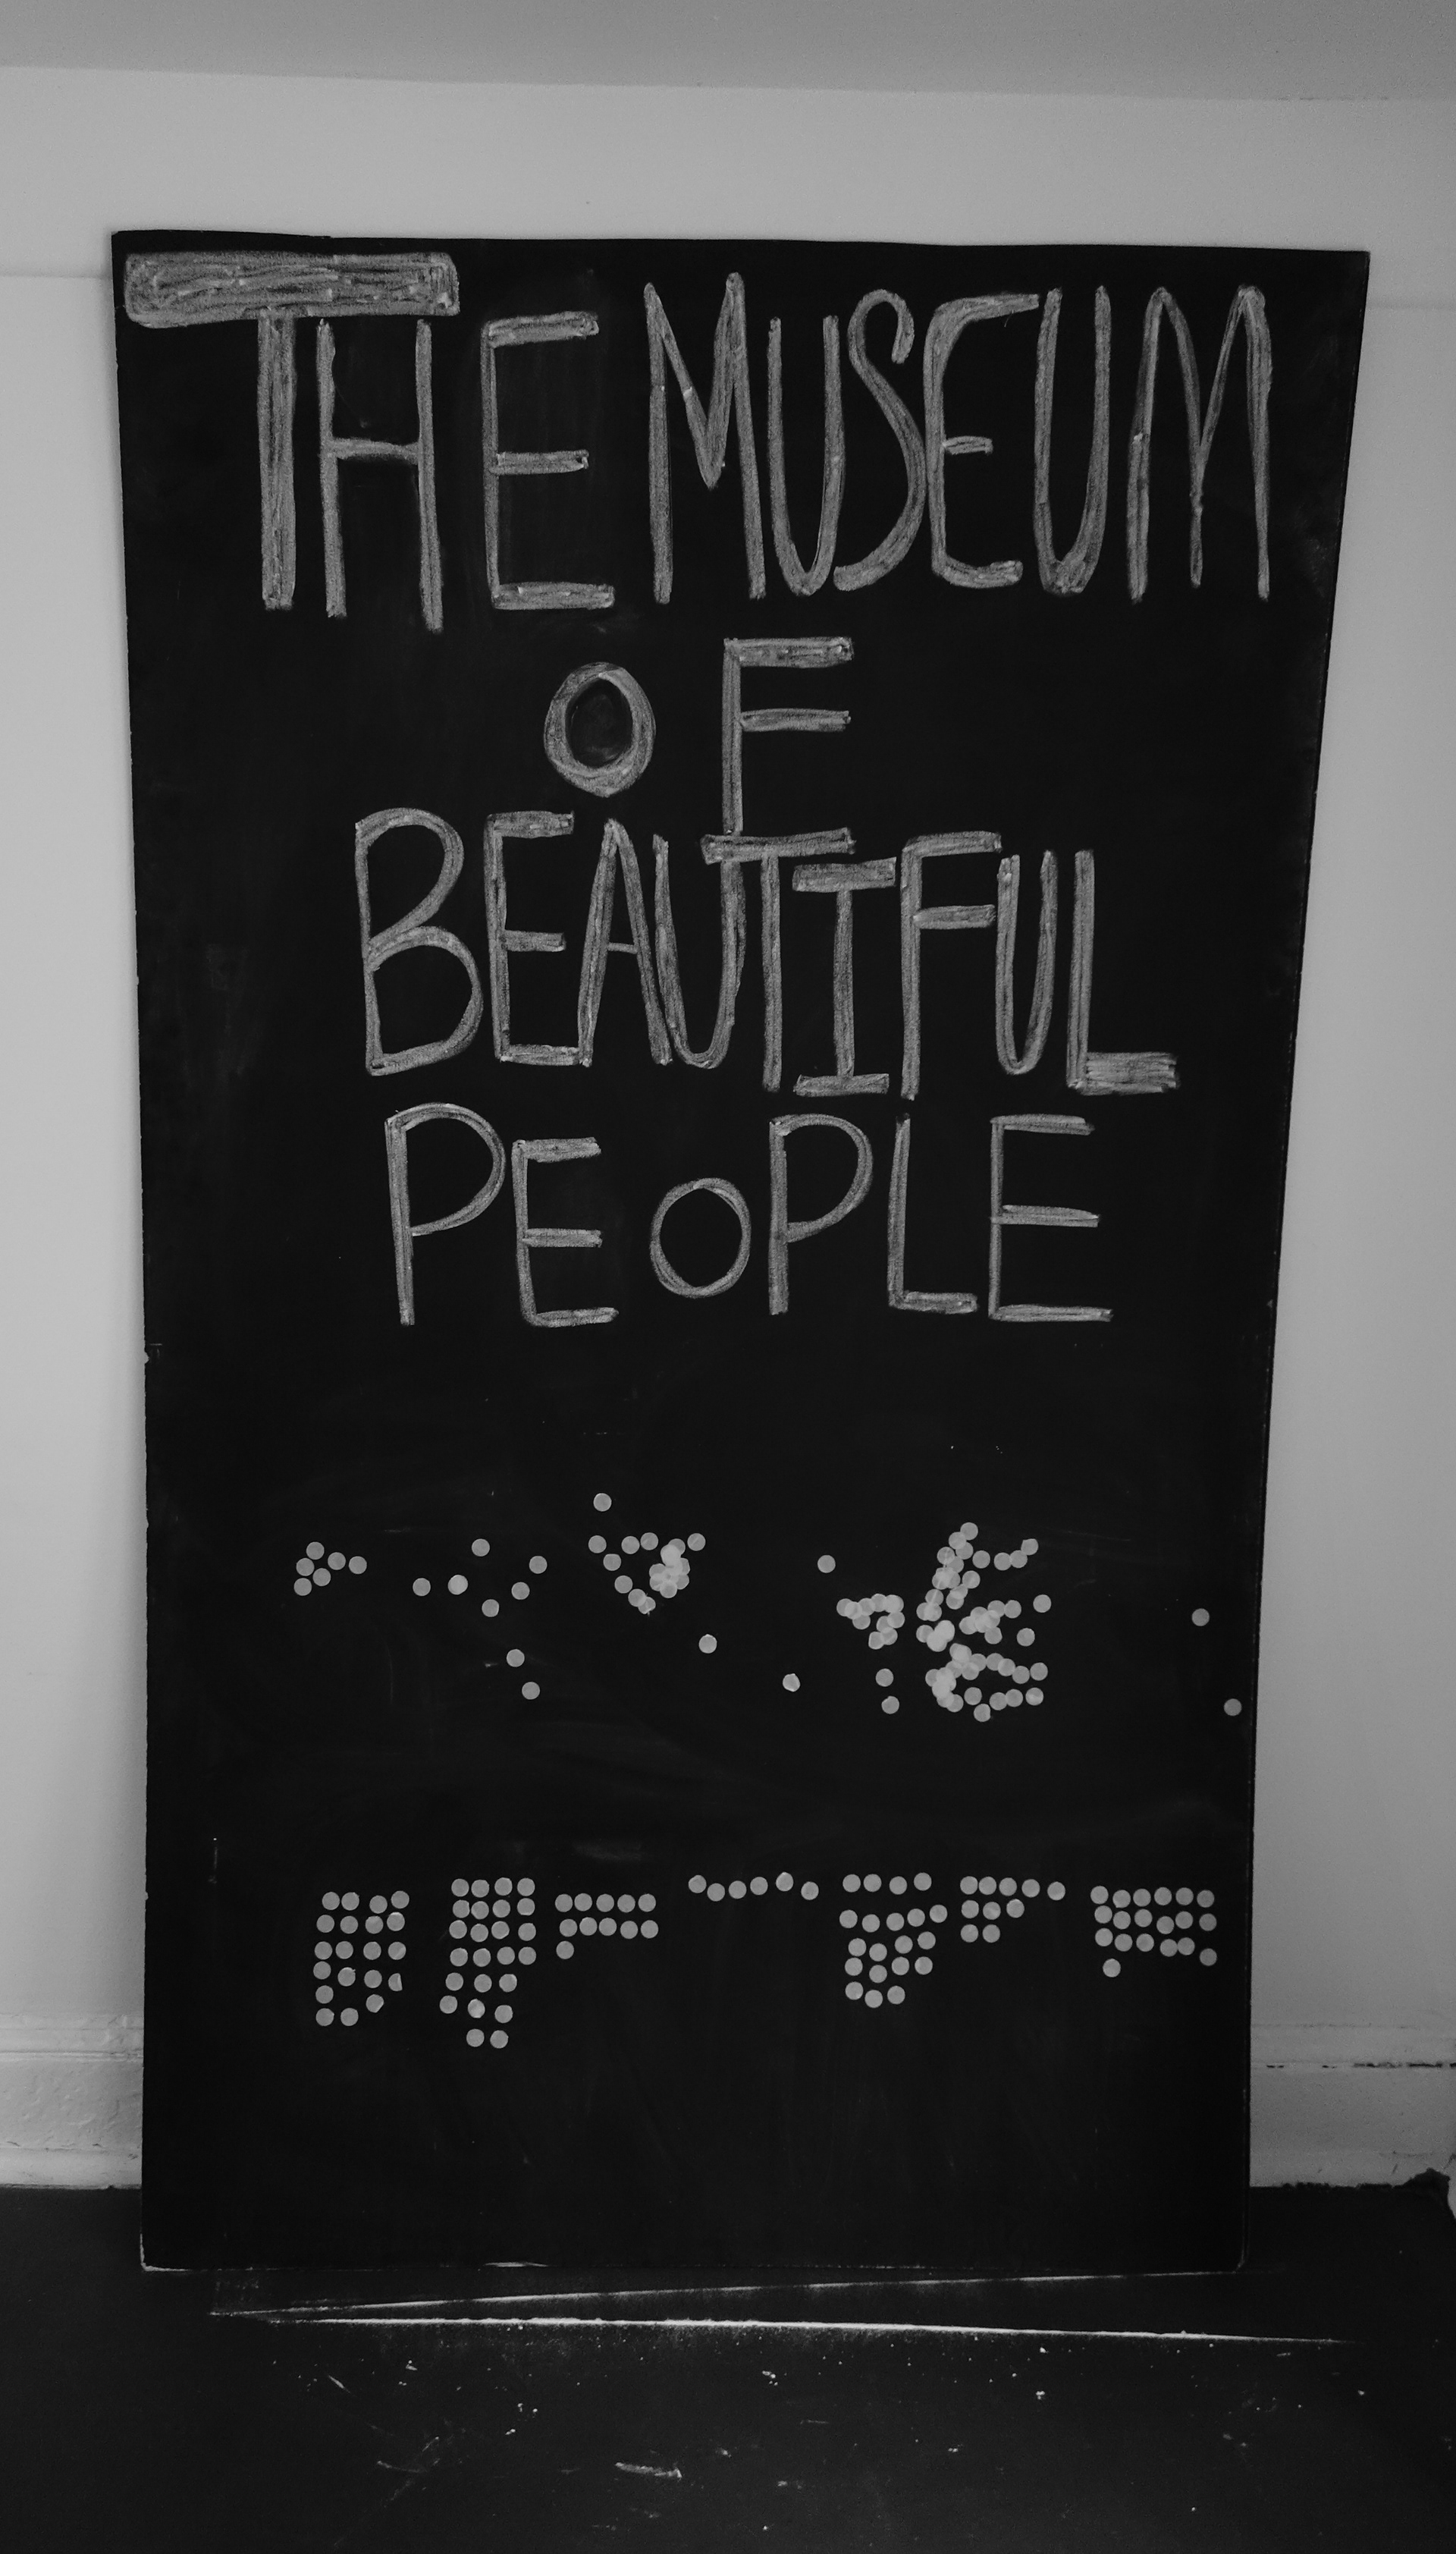 THE MUSEUM
OF
BEAUTIFUL
PEOPLE